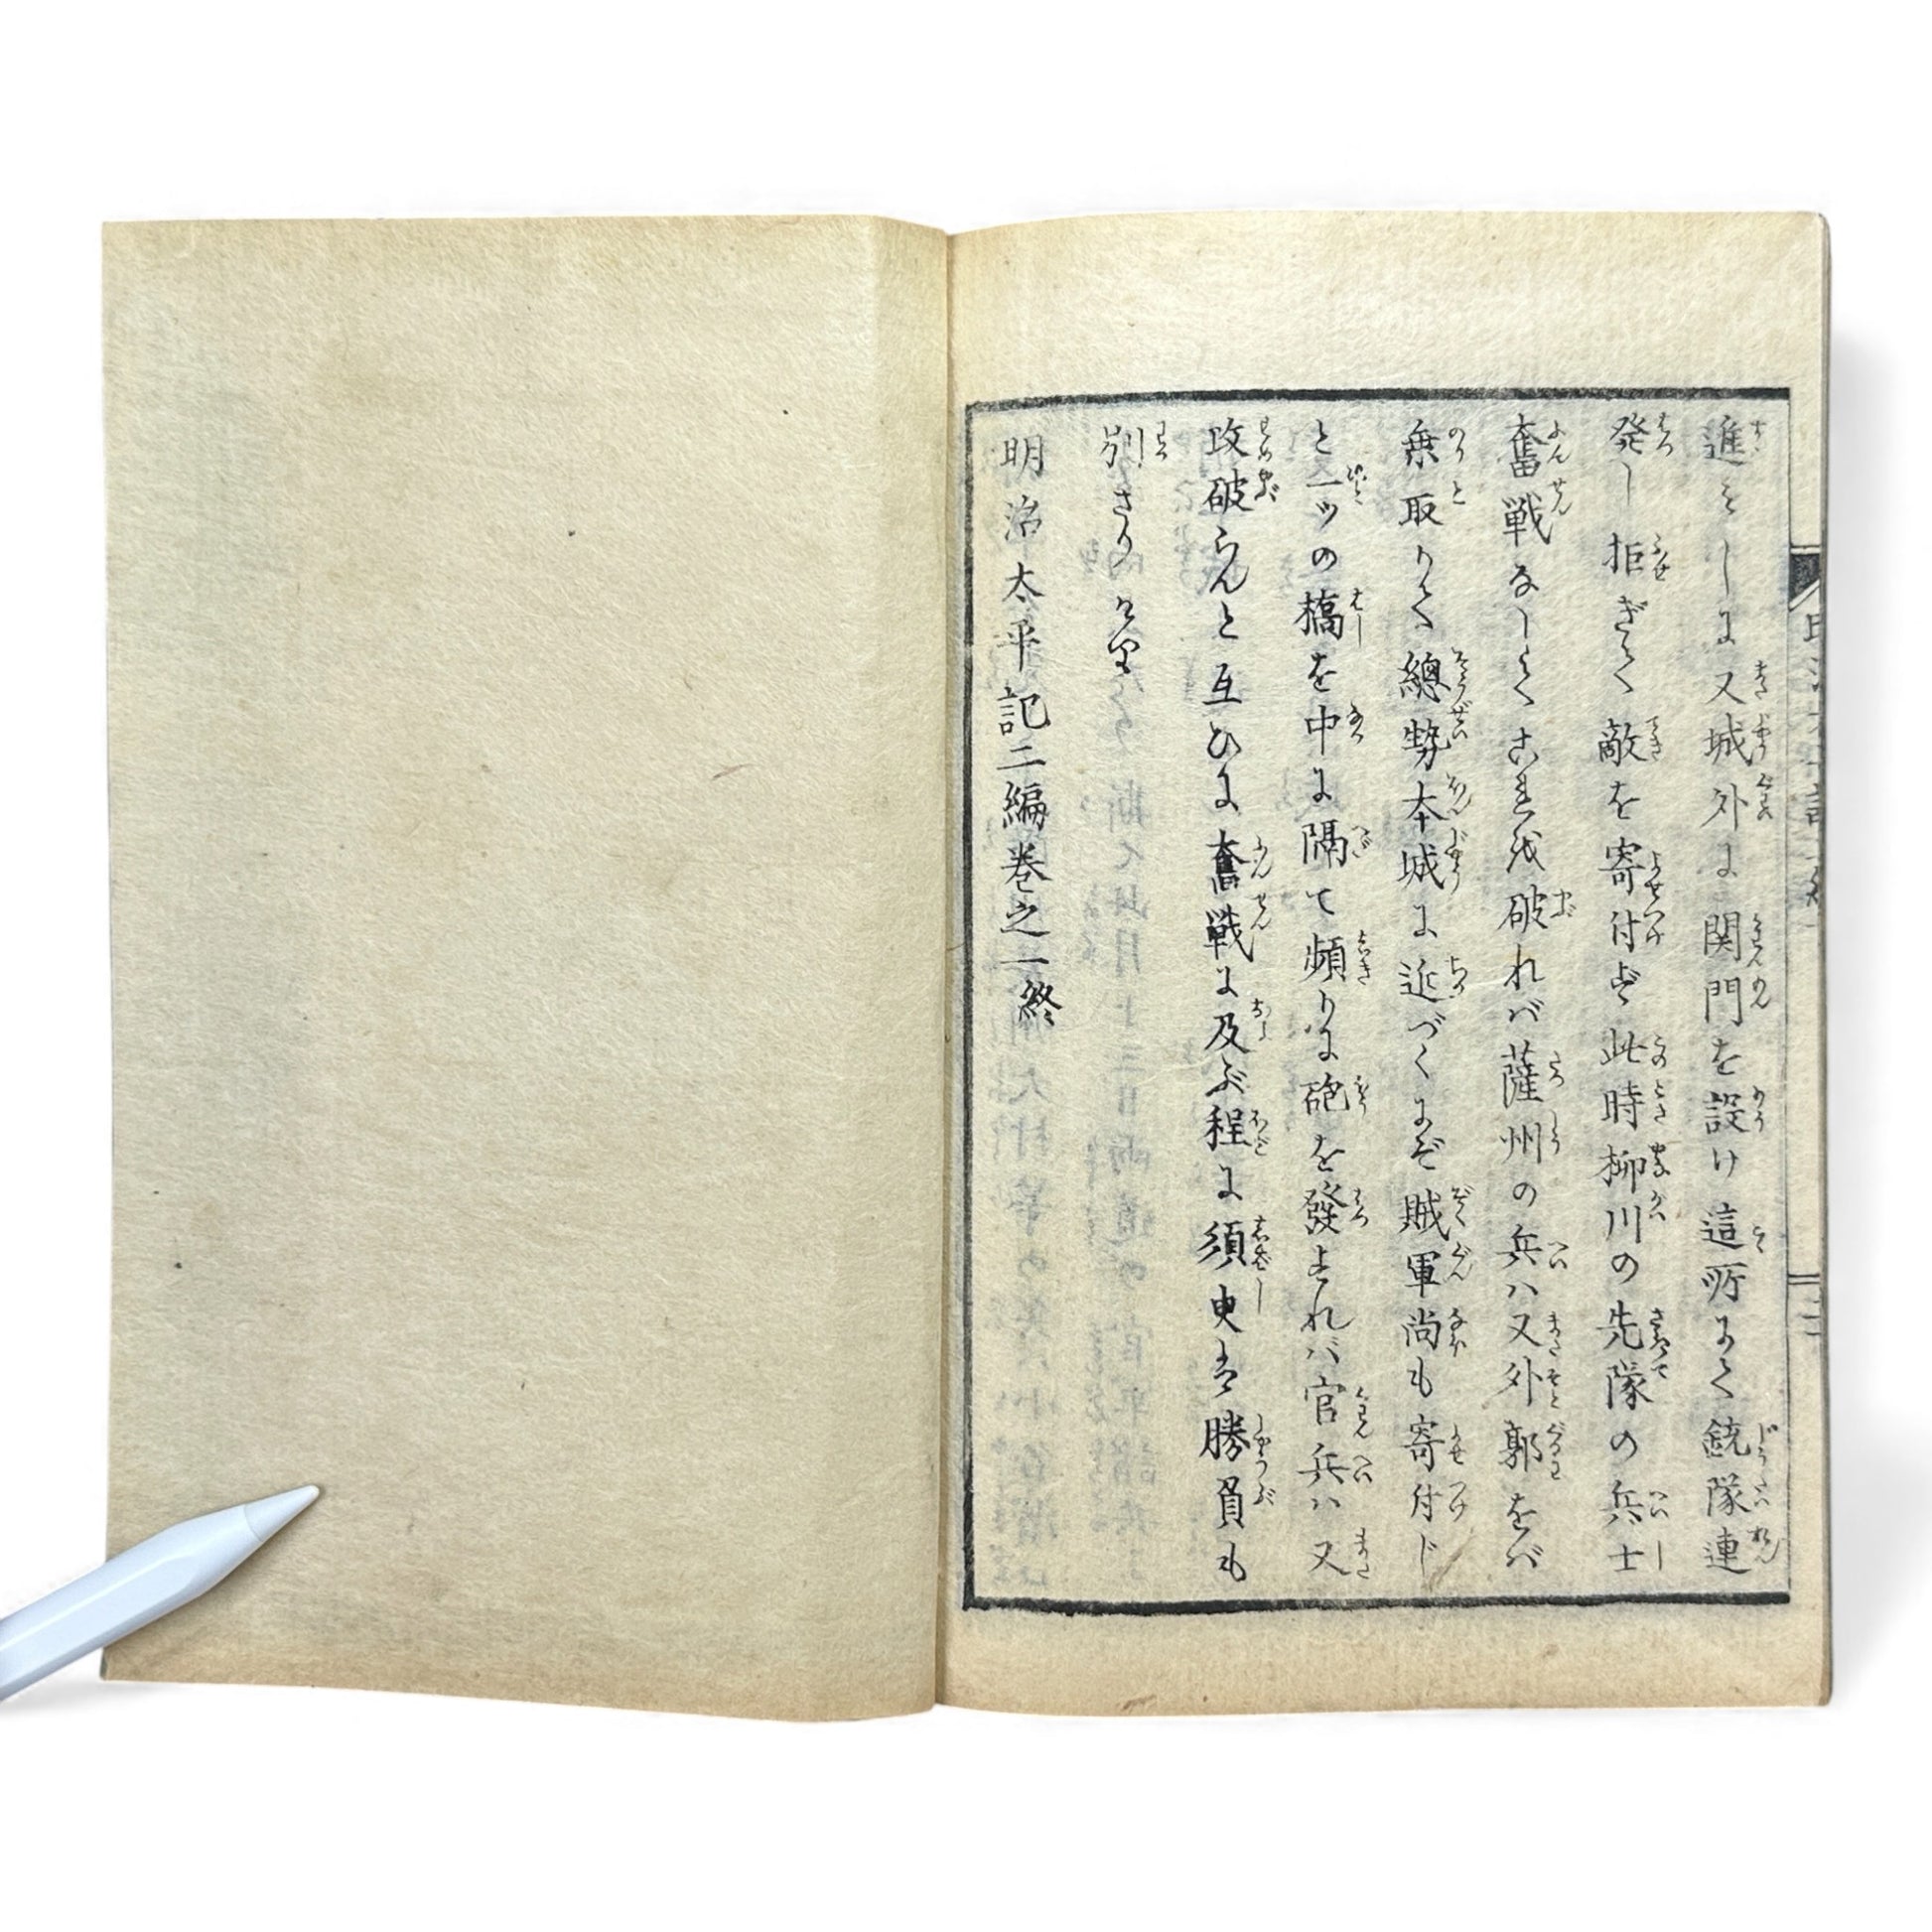 進みしに又城外に関門を設け這所にて銃隊連
発し拒ぎて敵を寄付ず此時柳川の先隊の兵士
奮戦なしてこれを破れバ薩州の兵ハ又外郭をバ
乗取りて總勢本城に近づくにぞ賊軍尚も寄付じ
と一ツの橋を中に隔て頻りに砲を發しれバ官兵ハ又
攻破らんと互ひに奮戦に及ぶ程に須臾は勝負も
別ざりけり
明治太平記二編巻之一終